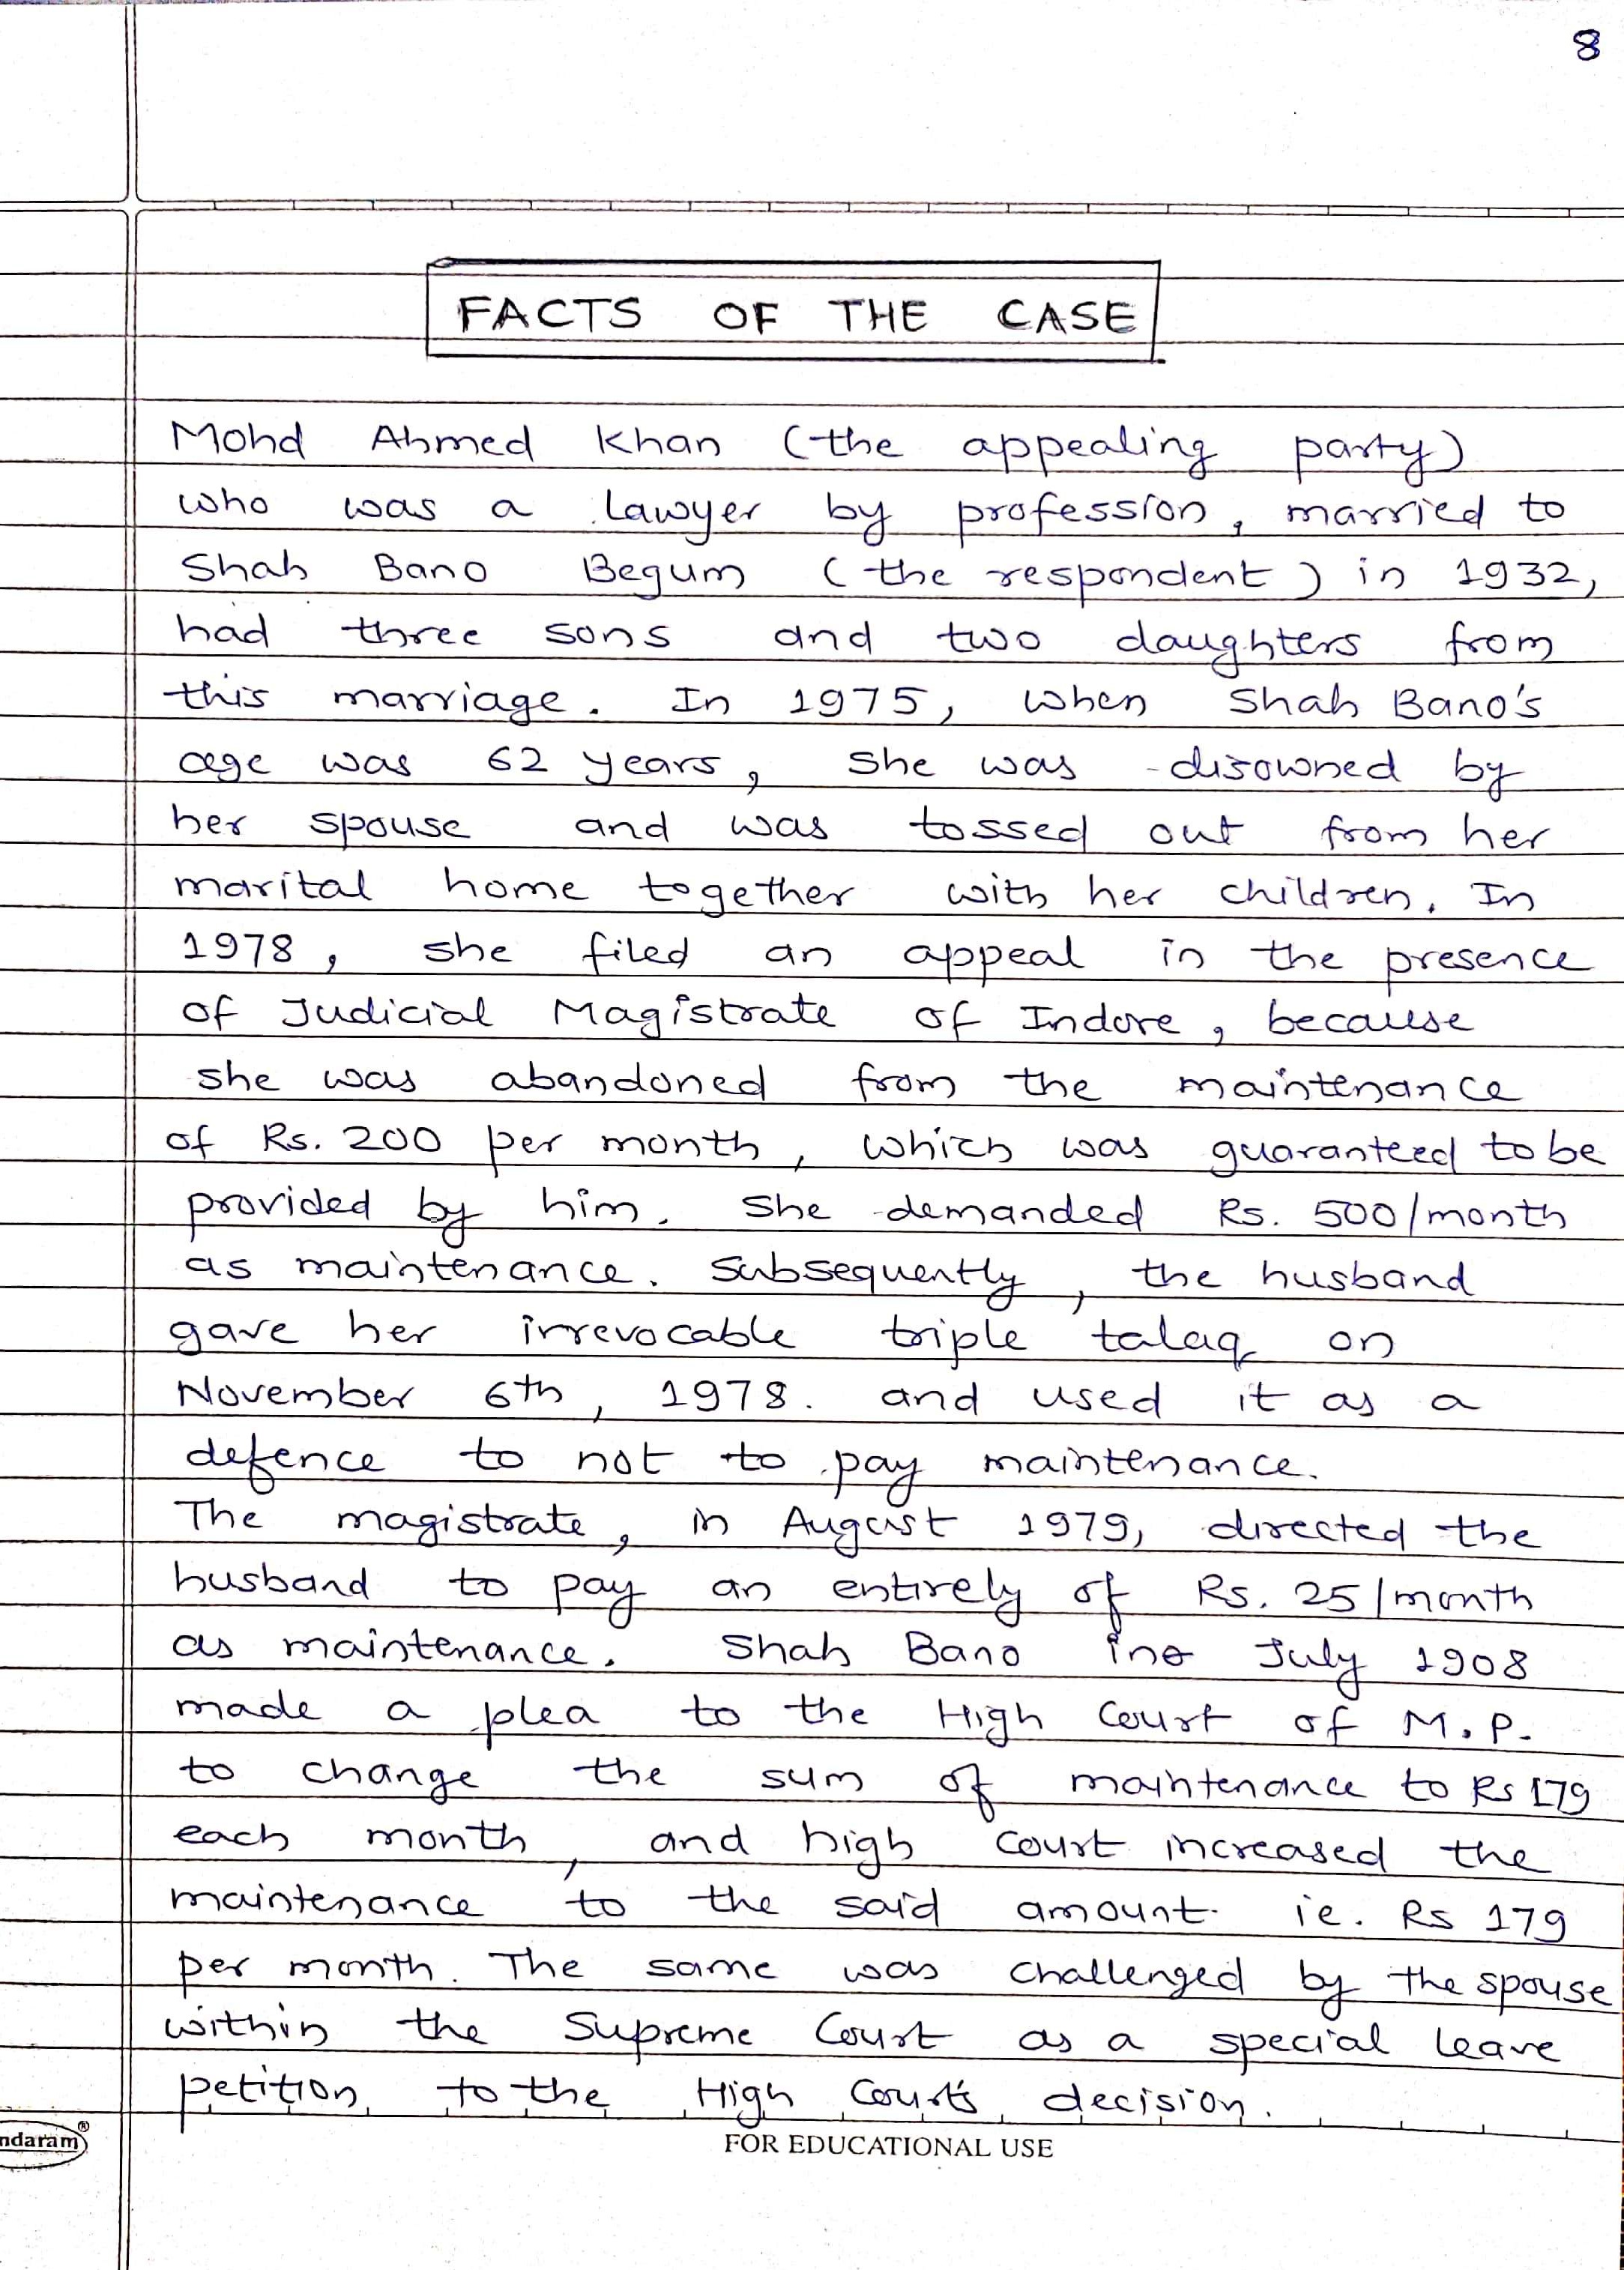 8
FACTS OF THE CASE
Mohd Ahmed Khan (the appealing party)
who was a lawyer by profession, married to
Shah Bano Begum (the respondent) in 1932,
had three sons and two daughters from
this marriage. In 1975, when Shah Bano's
age was 62 years, she was disowned by
her spouse and was tossed out from her
marital home together with her children. In
1978, she filed an appeal in the presence
of Judicial Magistrate of Indore, because
she was abandoned from the maintenance
of Rs. 200 per month, which was guaranteed to be
provided by him. She demanded Rs. 500/month
as maintenance. Subsequently, the husband
gave her irrevocable triple talaq on
November 6th, 1978. and used it as a
defence to not to pay maintenance.
The magistrate, in August 1979, directed the
husband to pay an entirely of Rs. 25/month
as maintenance. Shah Bano in July 1908
made a plea to the High Court of M.P.
to change the sum of maintenance to Rs 179
each month, and high court increased the
maintenance to the said amount. ie. Rs 179
per month. The same was challenged by the spouse
within the Supreme Court as a special leave
petition to the High Court's decision.
ndaram®
FOR EDUCATIONAL USE